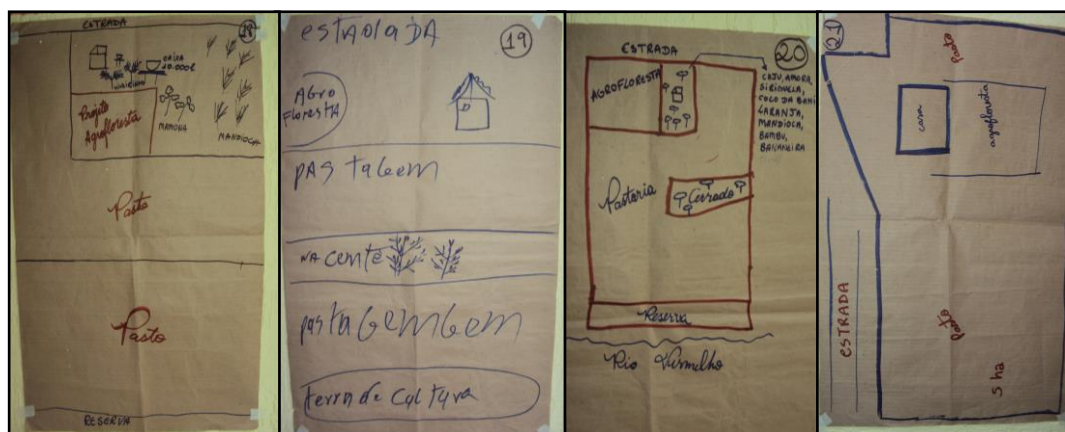 18
ESTRADA
CAIXA
20.000l
Projeto
Agrofloresta
MAMONA
MANDIOCA
Pasto
Pasto
RESERVA
19
estaolaDA
AGro
FlorestA
pAstagem
NAcente
pastaGemGem
terra de cultura
20
ESTRADA
AGROFLORESTA
CAJU, AMORA,
SIRIGUELA,
COCO DA BAHI
LARANJA,
MANDIOCA,
BAMBU,
BANANEIRA
Pastoria
Cerrado
Reserva
Rio Vermelho
21
Pasto
casa
agrofloresta
ESTRADA
Pasto
5 ha